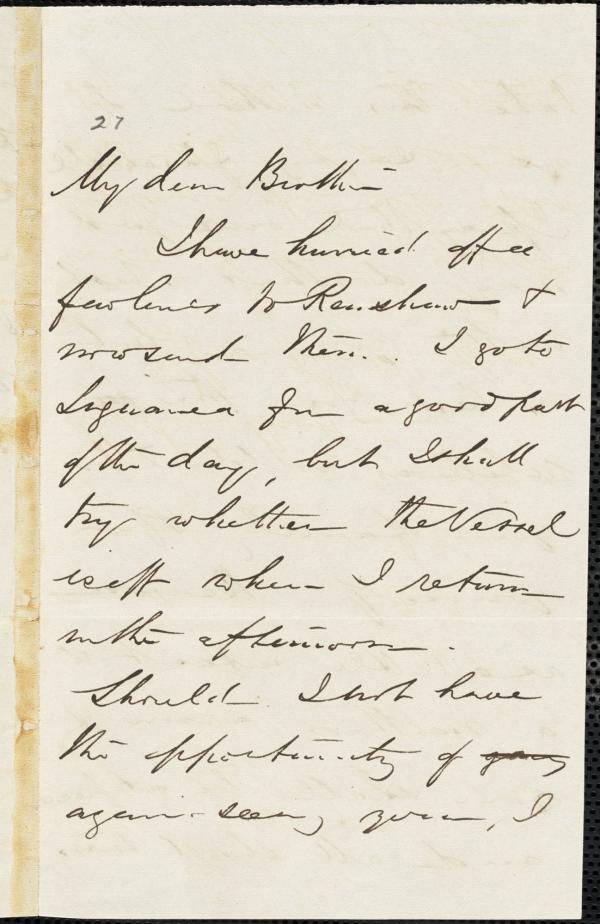 27
My dear Brother
I have hurried off a
few lines to Renshaw &
now send them. I go to
Liguanea for a good part
of the day, but I shall
try whether the Vessel
is off when I return
in the afternoon.
Should I not have
the opportunity of
again seeing you, I